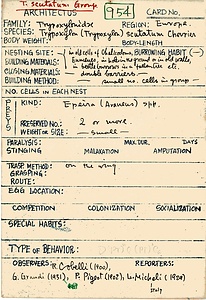 T. scutatum Group
ARCHITECTUS 954 CARD No.
FAMILY: Trypoxylonidae REGION: Europa.
SPECIES: Trypoxylon (Trypoxylon) scutatum Chevrier
BODY WEIGHT: BODY-LENGTH
NESTING SITE: in old cells of Chalicodoma, BURROWING HABIT (—)
BUILDING MATERIALS:
CLOSING MATERIALS: double barriers
BUILDING METHOD: small no. cells in group
NO. CELLS IN EACH NEST
PREYS KIND: Epeira (Araneus) spp.
PRESERVED NO.: 2 or more
WEIGHT OR SIZE: — small —
PARALYSIS: MAX. DUR. DAYS
STINGING MALAXATION AMPUTATION
TRASP. METHOD: on the wing
GRASPING:
ROUTE:
EGG LOCATION:
COMPETITION COLONIZATION SOCIALIZATION
SPECIAL HABITS:
TYPE OF BEHAVIOR:
OBSERVERS: R. Cobelli (1900), REPORTERS:
G. Grandi (1951), P. Pigot (1907), L. Micheli (1930)
Italy